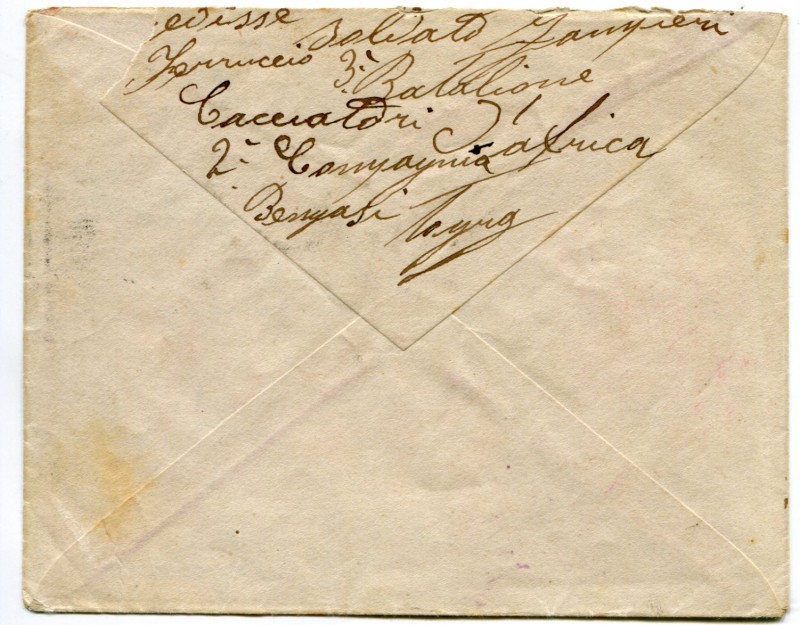 edisse Soldato Zampieri
Ferruccio 3º Batalione
Cacciatori d'africa
2ª Compagnia
Bengasi